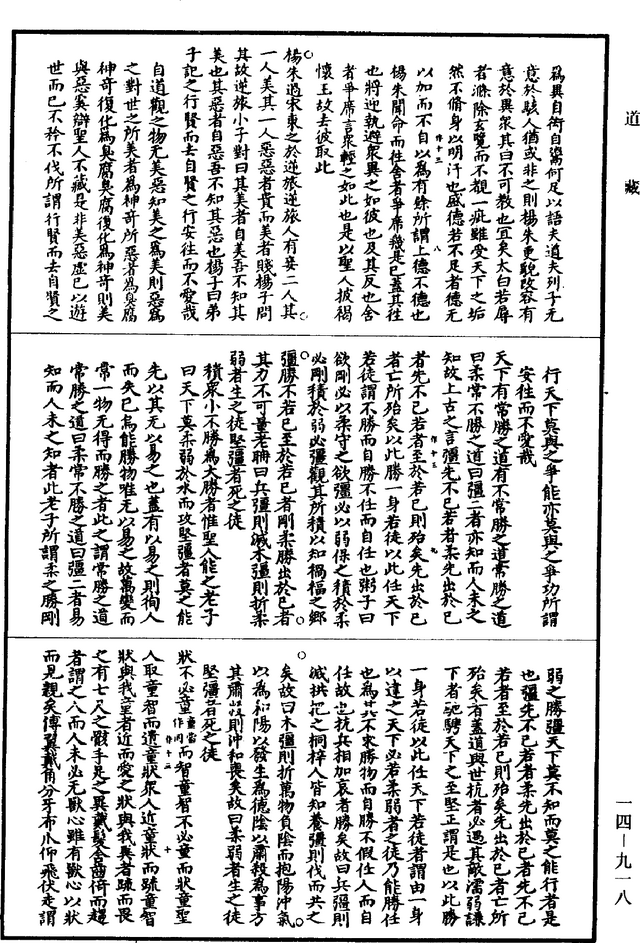 道藏
為異自衒自鬻何足以語夫道夫列子无
意於駭人猶或非之則楊朱更貌改容有
意於異眾其曰不可教也宜矣太白若辱
者滌除玄覽而不覩一疵雖受天下之垢
然不脩身以明汙也盛德若不足者德无
以加而不自以為有餘所謂上德不德也
楊朱聞命而往舍者爭席幾是已蓋其往
也將迎執避眾異之如彼也及其反也舍
者爭席言眾輕之如此也是以聖人披褐
懷玉故去彼取此
楊朱過宋東之於逆旅逆旅人有妾二人其
一人美其一人惡惡者貴而美者賤楊子問
其故逆旅小子對曰其美者自美吾不知其
美也其惡者自惡吾不知其惡也楊子曰弟
子記之行賢而去自賢之行安往而不愛哉
自道觀之物无美惡知美之為美則惡為
之對世之所美者為神奇所惡者為臭腐
神奇復化為臭腐臭腐復化為神奇則美
與惡奚辯聖人不藏是非美惡虛己以遊
世而已不矜不伐所謂行賢而去自賢之
行天下莫與之爭能亦莫與之爭功所謂
安往而不愛哉
天下有常勝之道有不常勝之道常勝之道
曰柔常不勝之道曰彊二者亦知而人未之
知故上古之言彊先不己若者柔先出於己
者先不己若者至於若己則殆矣先出於己
者亡所殆矣以此勝一身若徒以此任天下
若徒謂不勝而自勝不任而自任也粥子曰
欲剛必以柔守之欲彊必以弱保之積於柔
必剛積於弱必彊觀其所積以知禍福之鄉
彊勝不若己至於若己者剛柔勝出於己者
其力不可量老聃曰兵彊則滅木彊則折柔
弱者生之徒堅彊者死之徒
積眾小不勝為大勝者惟聖人能之老子
曰天下莫柔弱於水而攻堅彊者莫之能
先以其无以易之也蓋有以易之則徇人
而失己焉能勝物唯无以易之故萬變而
常一物无得而勝之者此之謂常勝之道
常勝之道曰柔常不勝之道曰彊二者易
知而人未之知者此老子所謂柔之勝剛
弱之勝彊天下莫不知而莫之能行者是
也彊先不己若者柔先出於己者先不己
若者至於若己則殆矣先出於己者亡所
殆矣有蓋道與世抗者必遇其敵濡弱謙
下者馳騁天下之至堅正謂是也以此勝
一身若徒以此任天下若徒者謂由一身
以達之天下必若柔弱者之徒乃能勝任
也為其不求勝物而自勝不假任人而自
任故也抗兵相加哀者勝矣故曰兵彊則
滅拱把之桐梓人皆知養彊則伐而共之
矣故曰木彊則折萬物負陰而抱陽沖氣
以為和陽以發生為德陰以肅殺為事方
其肅殺則沖和喪矣故曰柔弱者生之徒
堅彊者死之徒
狀不必童而智童智不必童而狀童聖
人取童智而遺童狀眾人近童狀而疏童智
狀與我童者近而愛之狀與我異者疏而畏
之有七尺之骸手足之異戴髮含齒倚而趣
者謂之人而人未必无獸心雖有獸心以狀
而見親矣傅翼戴角分牙布爪仰飛伏走謂
一四—九一八